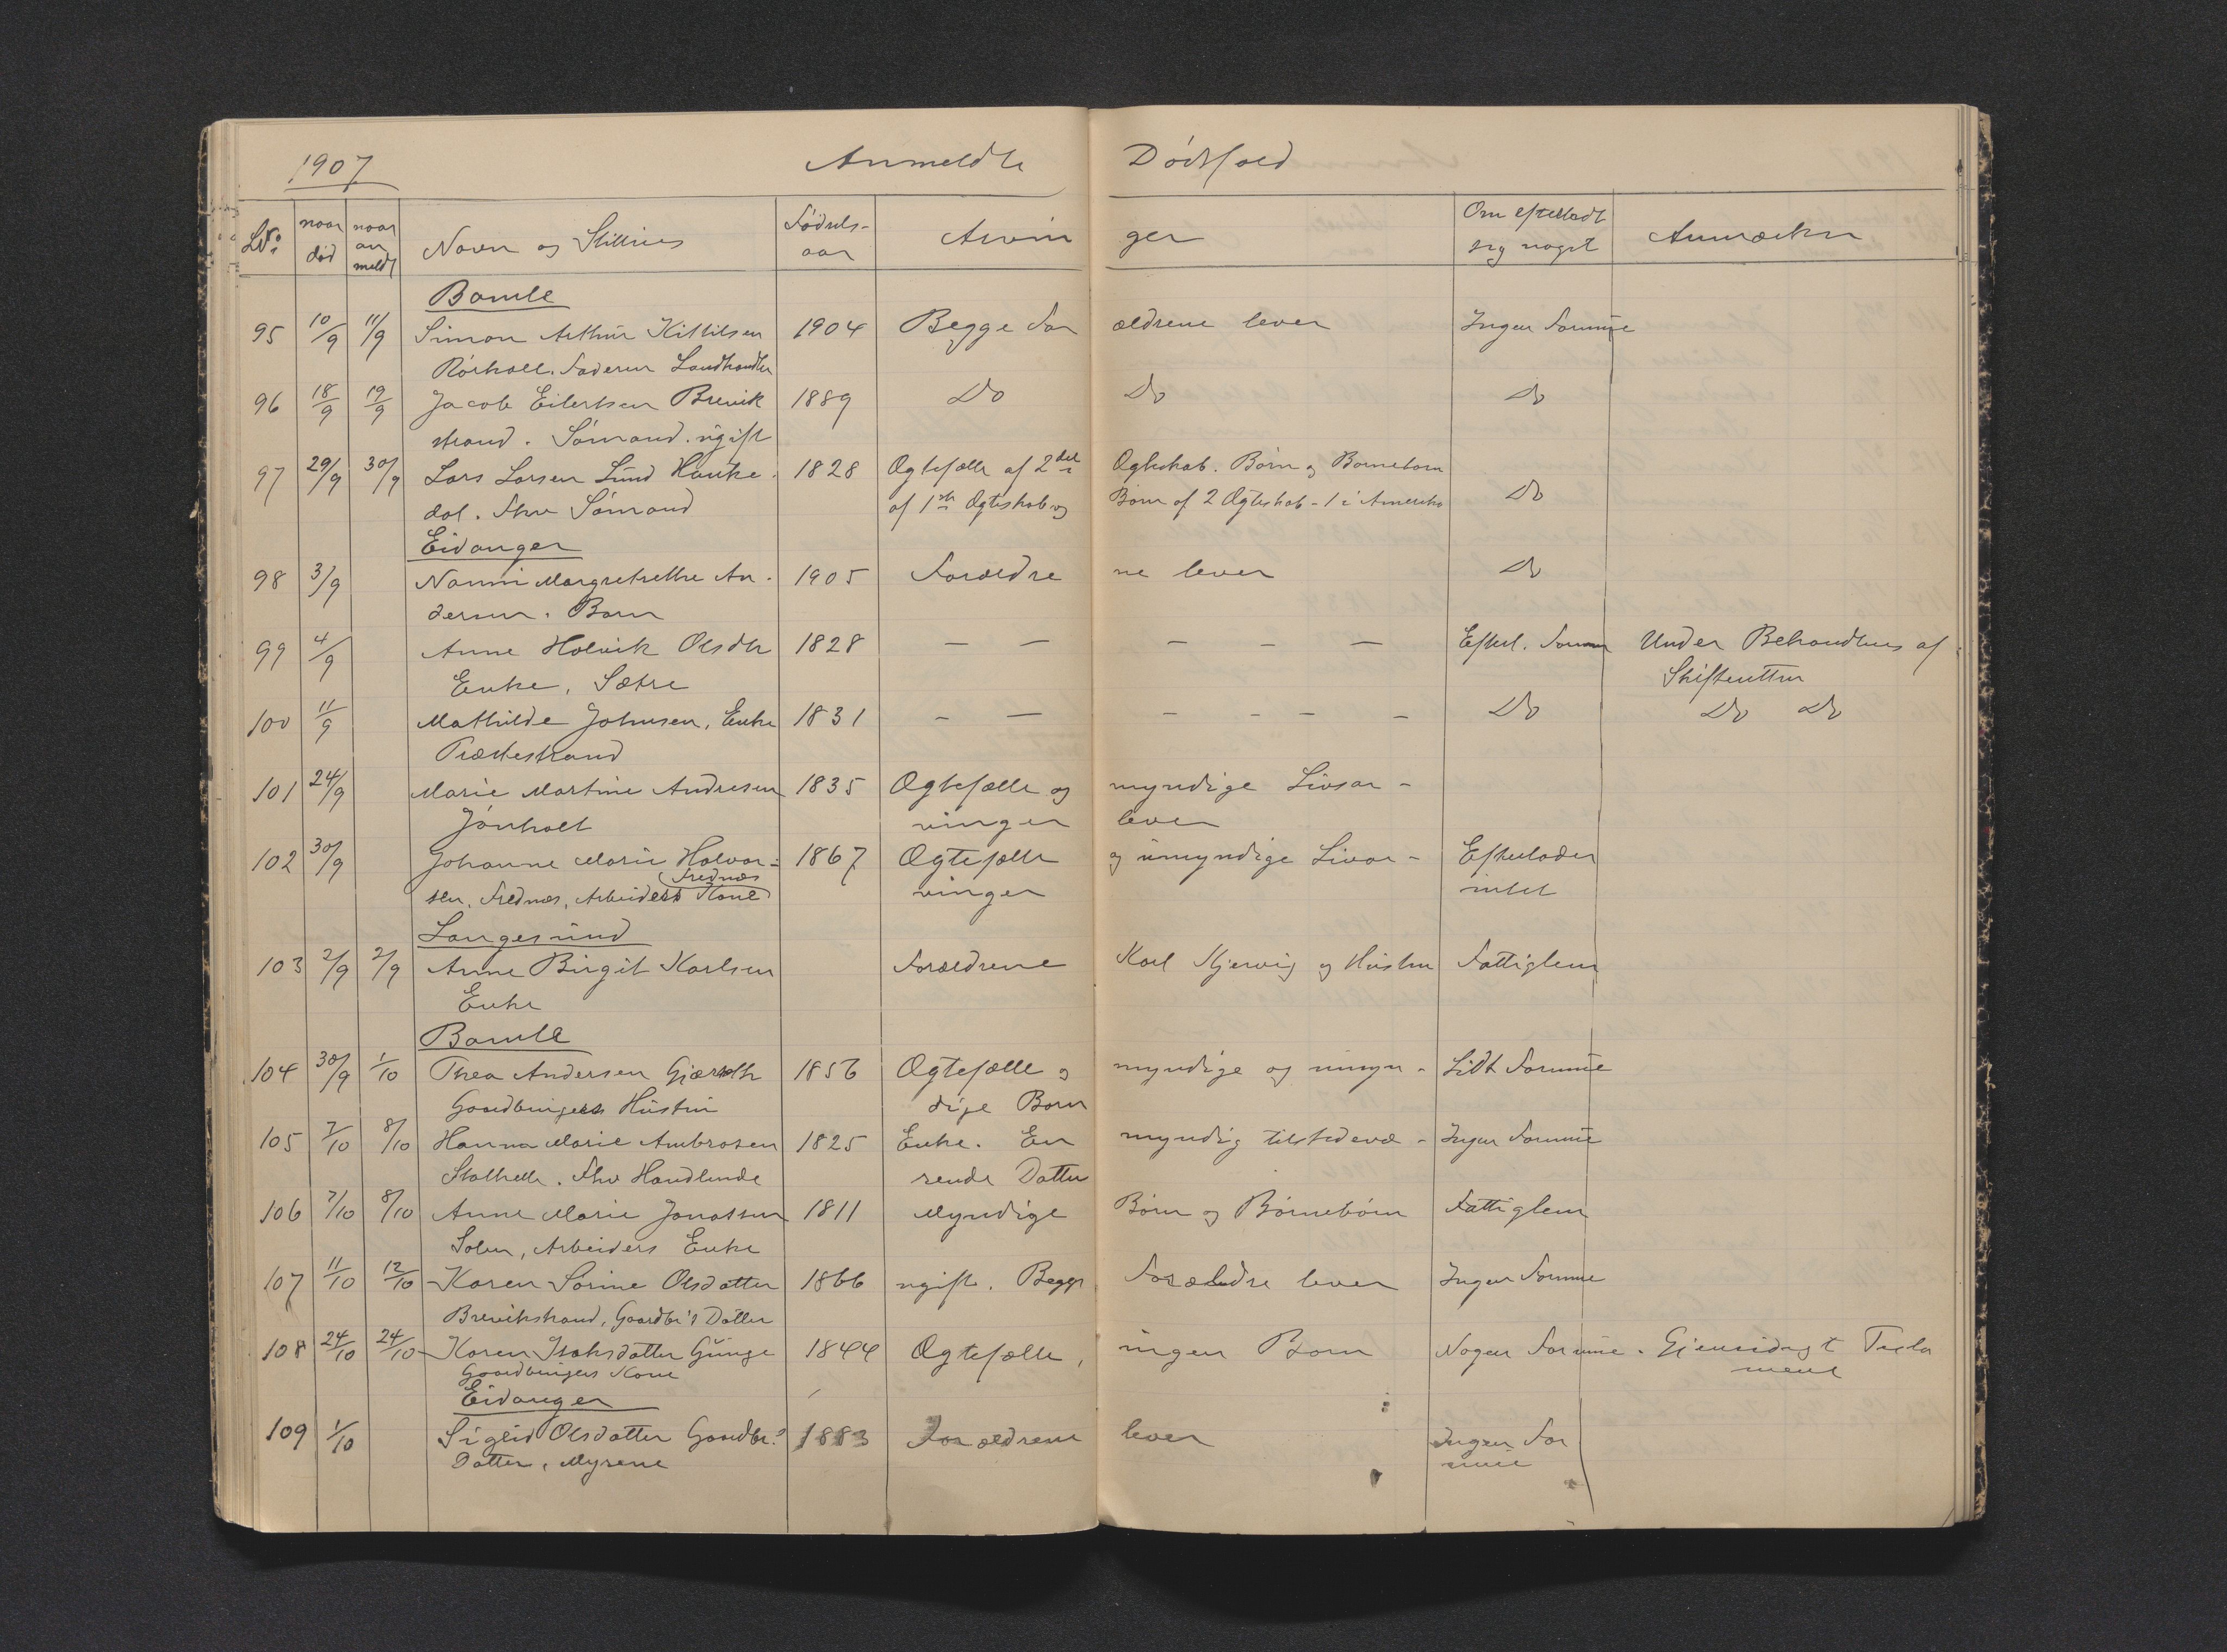 1907 Anmeldte Dødsfald
LNo: naar død naar an meldt Navn og Stilling Fødsels- aar Arvin ger Om efterladt sig noget Anmærkn
Bamle
95 10/9 11/9 Simon Arthur Kittilsen 1904 Begge For ældrene lever Ingen Formue
Rørholt. Faderen Landhandler
96 18/9 19/9 Jacob Eilertsen Brevik 1889 Do Do Do
strand. Sømand. ugift
97 29/9 30/9 Lars Larsen Lund Hauke 1828 Ægtefælle af 2det Ægteskab. Børn og Børnebørn
dal. Fhv Sømand af 1ste Ægteskab og Børn af 2 Ægteskab - 1 i Amerika Do
Eidanger
98 3/9 Nanni Margrethe An- 1905 Forældre ne lever Do
dersen. Barn
99 4/9 Anne Holvik Olsdtr 1828 — — — — — Efterl. Formue Under Behandling af
Enke, Sætre Skifteretten
100 11/9 Mathilde Johnsen, Enke 1831 — — — — — — Do Do Do
Præstestrand
101 24/9 Marie Martine Andresen 1835 Ægtefælle og myndige Livsar-
Jønholt vinger lever
102 30/9 Johanne Marie Halvor- 1867 Ægtefælle og umyndige Livar- Efterlader
Frednes
sen, Frednes, Arbeiders Kone vinger intet
Langesund
103 2/9 2/9 Anne Birgit Karlsen Forældrene Karl Kjervig og Hustru Fattiglem
Enke
Bamle
104 30/9 1/10 Thea Andersen 1856 Ægtefælle og myndige og umyn- Lidt Formue
Gaardbrugers Hustru dige Børn
105 7/10 8/10 Hanna Marie Ambrosen 1825 Enke. En myndig tilstedevæ- Ingen Formue
Stathelle. Fhv Handlende rende Datter
106 7/10 8/10 Anne Marie Jonassen 1811 Myndige Børn og Børnebørn Fattiglem
Arbeiders Enke
107 11/10 12/10 Karen Sørine Olsdatter 1866 ugift. Begge Forældre lever Ingen Formue
Brevikstrand, Gaardbr's Datter
108 24/10 24/10 Karen Isaksdatter Gunge 1844 Ægtefælle, ingen Børn Nogen Formue. Gjensidigt Testa
Gaardbrugers Kone ment
Eidanger
109 1/10 Sigrid Olsdatter Gaardbr.s 1883 Forældrene lever Ingen For
Datter, Myrene mue